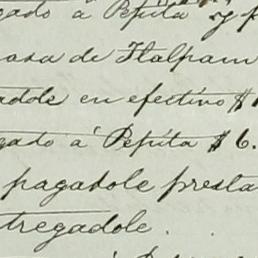 gado á Pepita y p
casa de Tlalpam
adole en efectivo $1
gado á Pepita $6.
pagadole presta
tregadole.